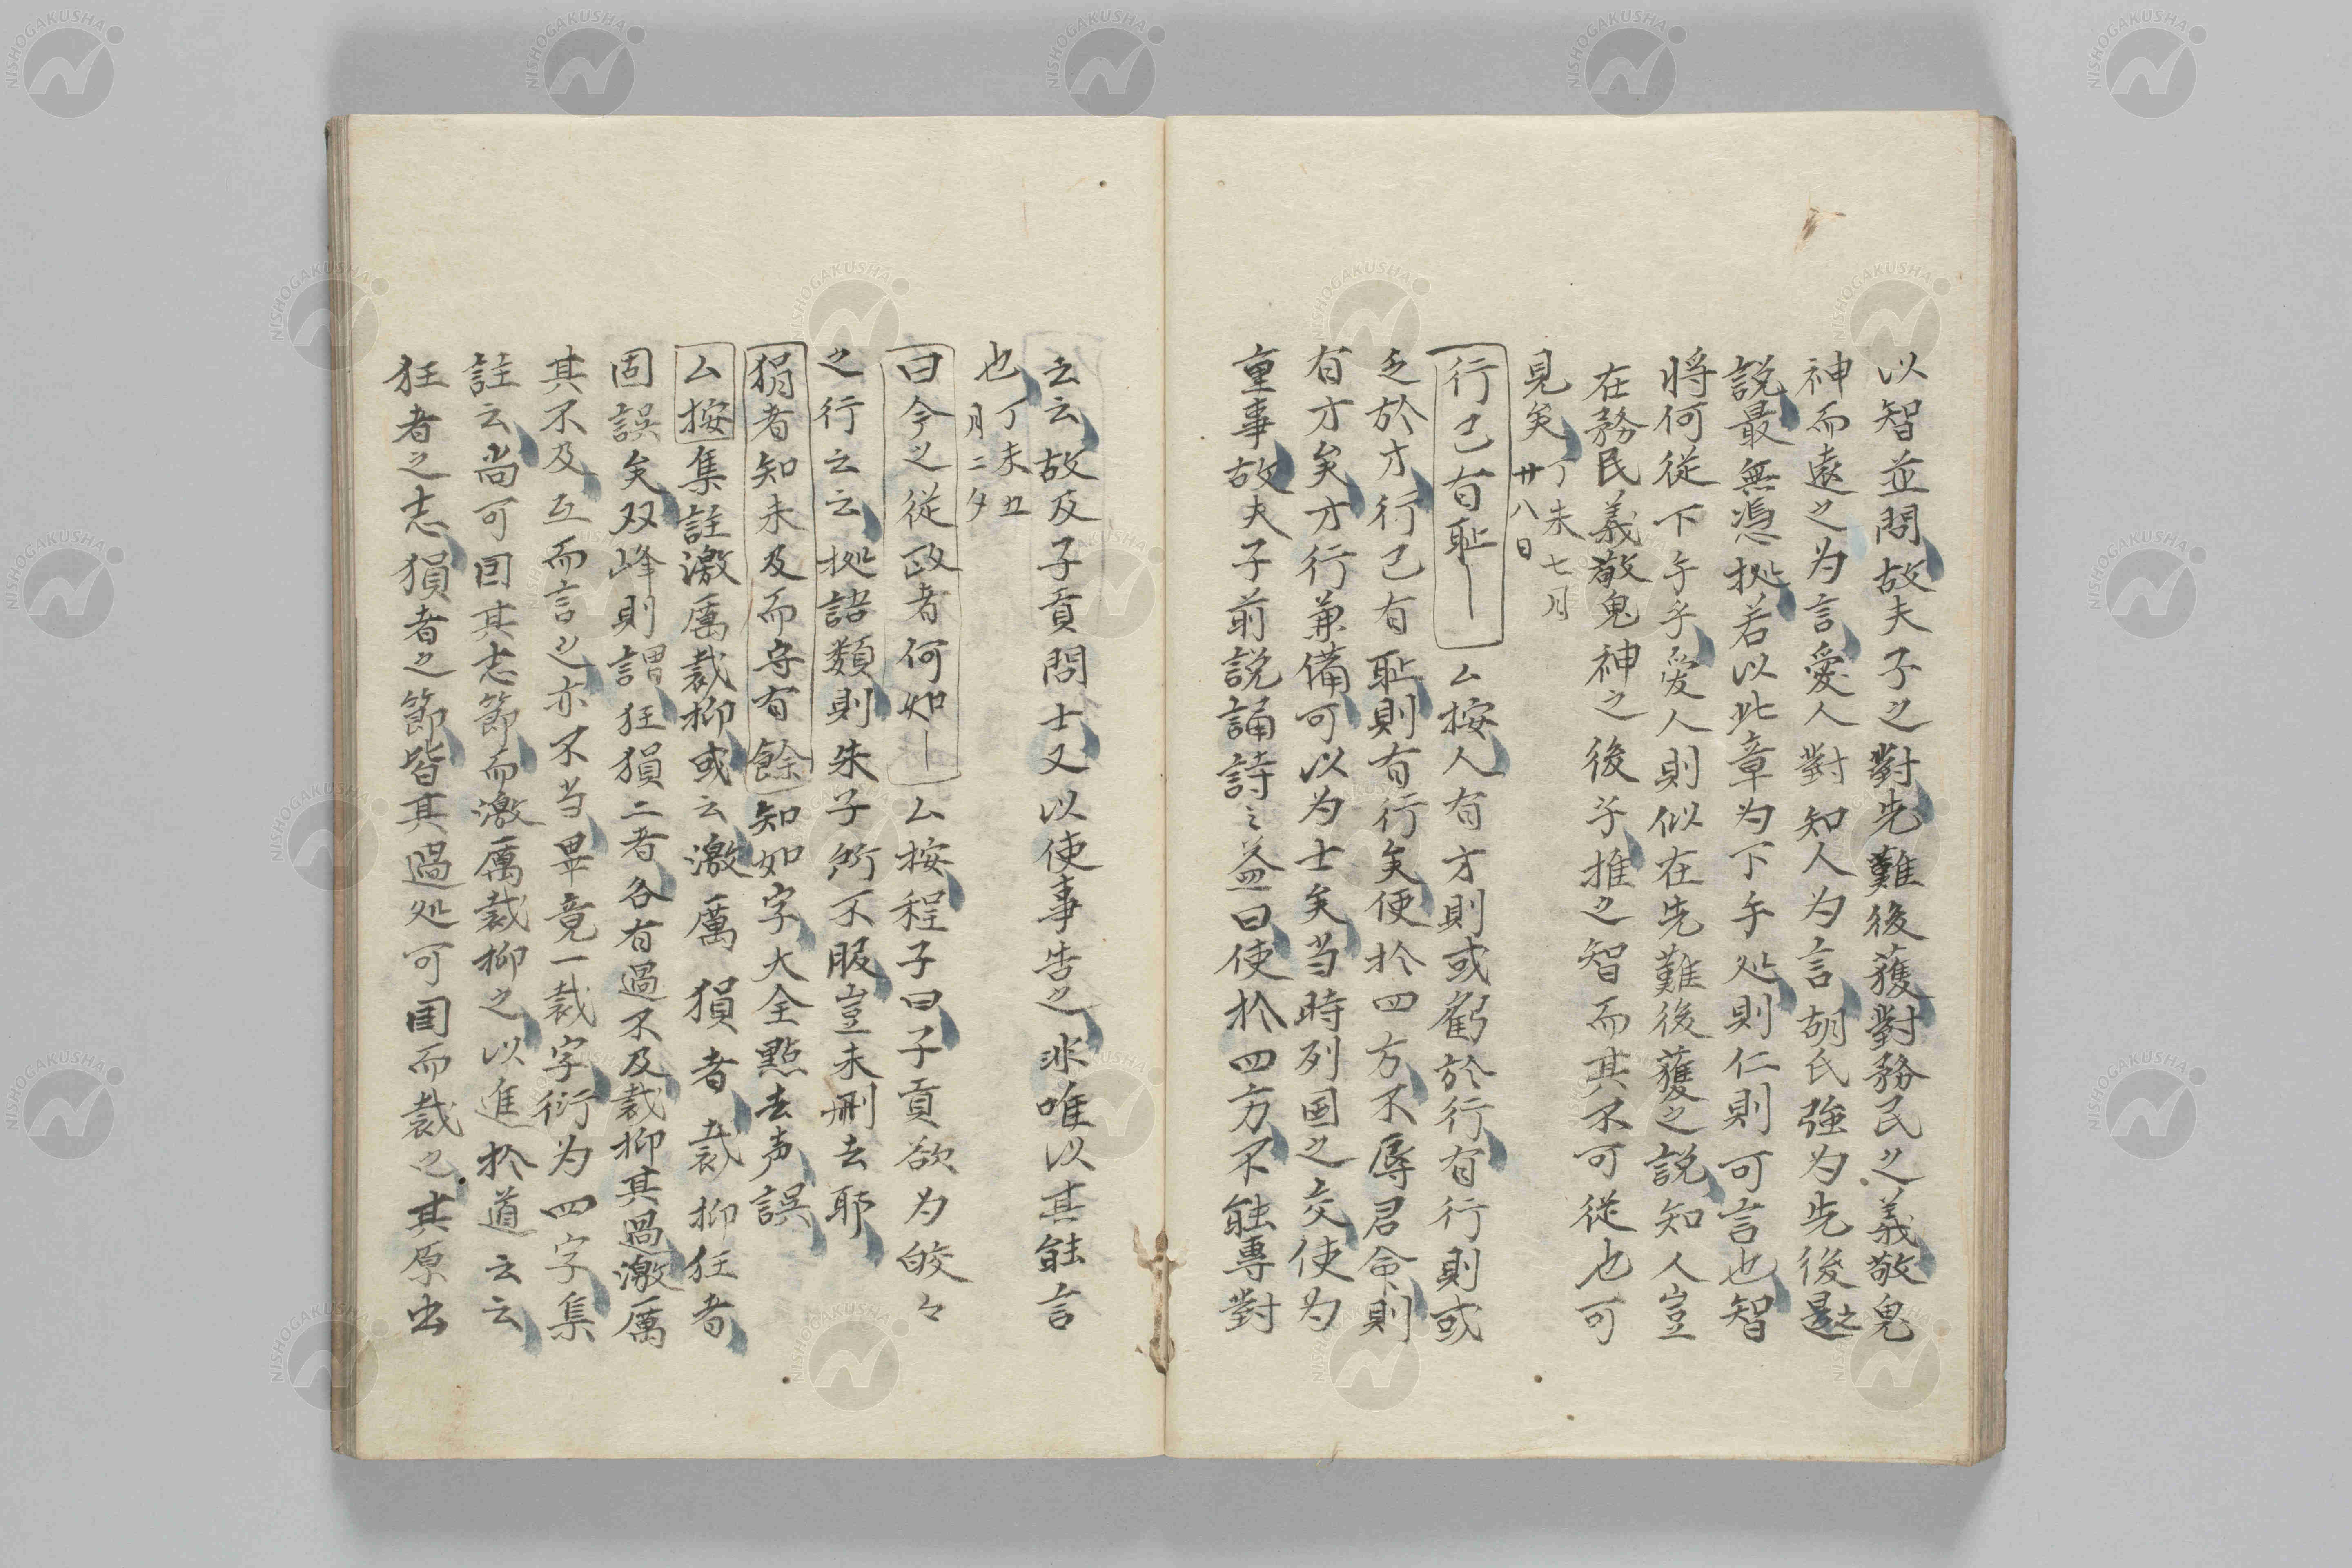 以智並問故夫子之對先難後獲對務民之義敬鬼
神而遠之为言愛人對知人为言胡氏強为先後之
説最無憑拠若以此章为下手処則仁則可言也智
将何従下手乎愛人則似在先難後獲之説知人豈
在務民義敬鬼神之後乎推之智而其不可従也可
見矣丁未七月
廿八日
行己有耻｜厶按人有才則或虧於行有行則或
乏於才行己有耻則有行矣使於四方不辱君命則
有才矣才行兼備可以为士矣当時列国之交使为
重事故夫子前説誦詩之益曰使於四方不能專對
云云故及子貢問士又以使事告之非唯以其能言
也丁未五
月二夕
曰今之従政者何如｜厶按程子曰子貢欲为皎々
之行云云拠語類則朱子所不服豈未刪去耶
狷者知未及而守有餘知如字大全點去声誤
厶按集註激厲裁抑或云激厲狷者裁抑狂者
固誤矣双峰則謂狂狷二者各有過不及裁抑其過激厲
其不及互而言之亦不当畢竟一裁字衍为四字集
註云尚可因其志節而激厲裁抑之以進於道云云
狂者之志狷者之節皆其過処可因而裁之其原出
NISHOGAKUSHA